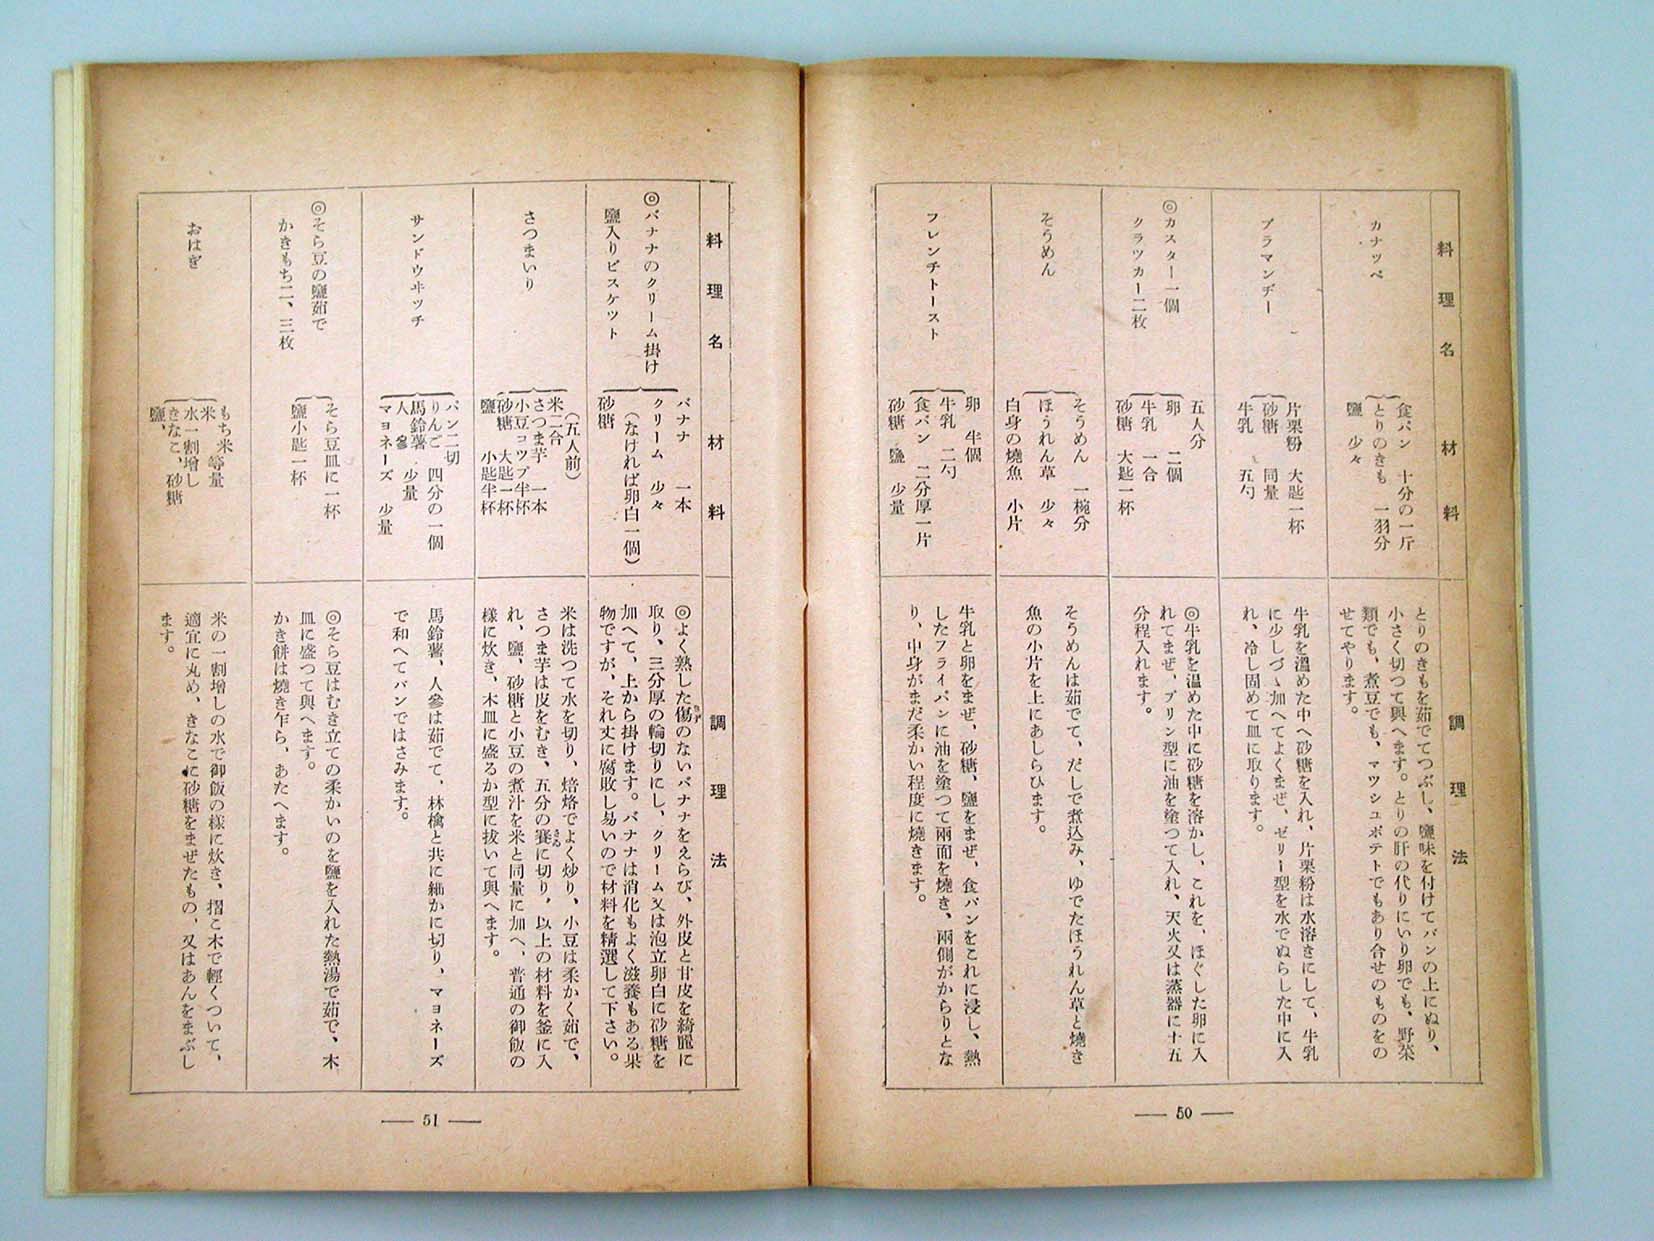 料理名
材料
調理法
カナッペ
食パン 十分の一斤
とりのきも 一羽分
鹽 少々
とりのきもを茹でてつぶし、鹽味を付けてパンの上にぬり、
小さく切つて與へます。とりの肝の代りにいり卵でも、野菜
類でも、煮豆でも、マツシユポテトでもあり合せのものをの
せてやります。
ブラマンヂー
片栗粉 大匙一杯
砂糖 同量
牛乳 五勺
牛乳を溫めた中へ砂糖を入れ、片栗粉は水溶きにして、牛乳
に少しづゝ加へてよくまぜ、ゼリー型を水でぬらした中に入
れ、冷し固めて皿に取ります。
◎カスター一個
クラツカー二枚
五人分
卵 二個
牛乳 一合
砂糖 大匙一杯
◎牛乳を温めた中に砂糖を溶かし、これを、ほぐした卵に入
れてまぜ、プリン型に油を塗つて入れ、天火又は蒸器に十五
分程入れます。
そうめん
そうめん 一椀分
ほうれん草 少々
白身の燒魚 小片
そうめんは茹でて、だしで煮込み、ゆでたほうれん草と燒き
魚の小片を上にあしらひます。
フレンチトースト
卵 半個
牛乳 二勺
食パン 二分厚一片
砂糖 鹽 少量
牛乳と卵をまぜ、砂糖、鹽をまぜ、食パンをこれに浸し、熱
したフライパンに油を塗つて兩面を燒き、兩側がからりとな
り、中身がまだ柔かい程度に燒きます。
— 50 —
料理名
材料
調理法
◎バナナのクリーム掛け
鹽入りビスケツト
バナナ 一本
クリーム 少々
(なければ卵白一個)
砂糖
◎よく熟した傷きずのないバナナをえらび、外皮と甘皮を綺麗に
取り、三分厚の輪切りにし、クリーム又は泡立卵白に砂糖を
加へて、上から掛けます。バナナは消化もよく滋養もある果
物ですが、それ丈に腐敗し易いので材料を精選して下さい。
さつまいり
(五人前)
米二合
さつま芋 一本
小豆コツプ半杯
砂糖 大匙一杯
鹽 小匙半杯
米は洗つて水を切り、焙烙でよく炒り、小豆は柔かく茹で、
さつま芋は皮をむき、五分の賽さゐに切り、以上の材料を釜に入
れ、鹽、砂糖と小豆の煮汁を米と同量に加へ、普通の御飯の
樣に炊き、木皿に盛るか型に拔いて與へます。
サンドウヰツチ
パン二切
りんご 四分の一個
馬鈴薯 少量
人參
マヨネーズ 少量
馬鈴薯、人參は茹でて、林檎と共に細かに切り、マヨネーズ
で和へてパンではさみます。
◎そら豆の鹽茹で
かきもち二、三枚
そら豆皿に一杯
鹽小匙一杯
◎そら豆はむき立ての柔かいのを鹽を入れた熱湯で茹で、木
皿に盛つて與へます。
かき餅は燒き乍ら、あたへます。
おはぎ
もち米 等量
米
水一割増し
きなこ、砂糖
鹽、
米の一割増しの水で御飯の樣に炊き、摺こ木で輕くついて、
適宜に丸め、きなこに砂糖をまぜたもの、又はあんをまぶし
ます。
— 51 —